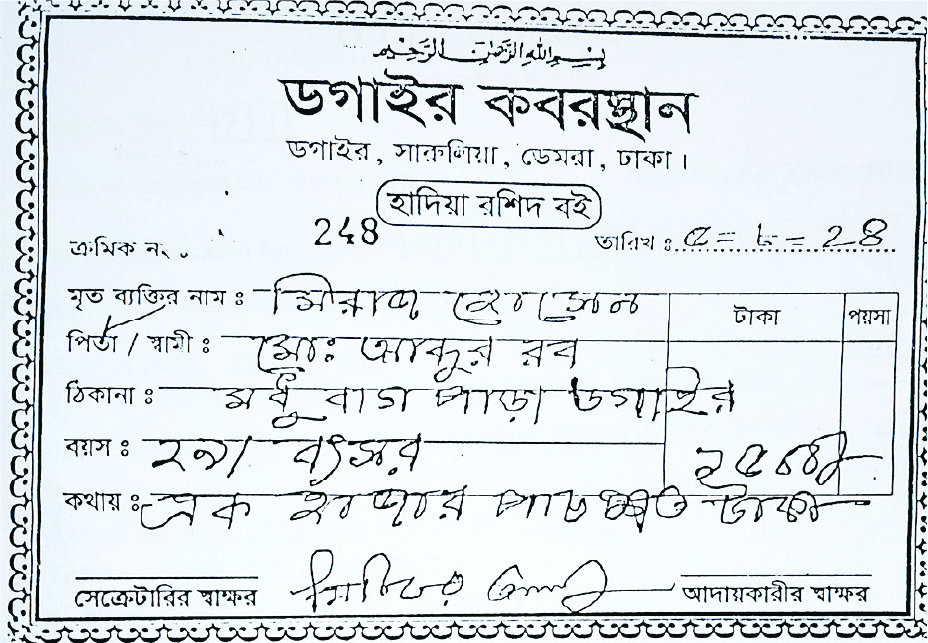 بسم الله الرحمن الرحيم
ডগাইর কবরস্থান
ডগাইর, সারুলিয়া, ডেমরা, ঢাকা।
হাদিয়া রশিদ বই
ক্রমিক নং
তারিখ : ৫ = ৮ = ২৪
মৃত ব্যক্তির নাম : সিরাজ হোসেন
টাকা পয়সা
পিতা / স্বামী : মোঃ আব্দুর রব
ঠিকানা : মধু বাগ পাড়া ডগাইর
বয়স : বৎসর
কথায় : এক হাজার পাচ শত টাকা
সেক্রেটারির স্বাক্ষর আদায়কারীর স্বাক্ষর